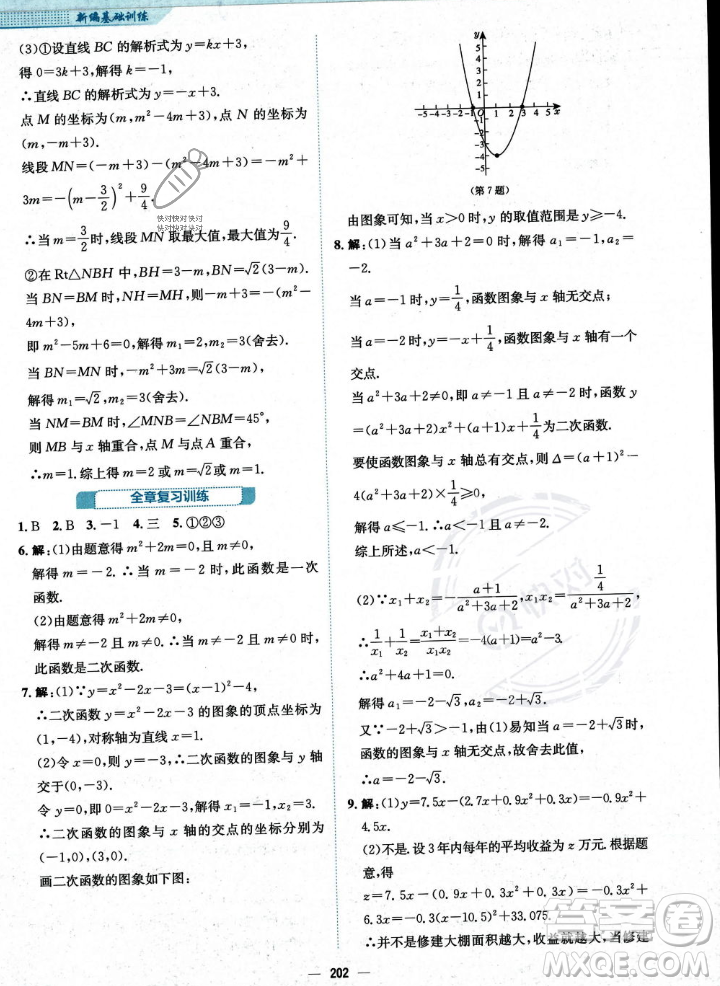 新编基础训练
(3)①设直线 BC 的解析式为 y=kx+3,
得 0=3k+3,解得 k=-1,
∴直线 BC 的解析式为 y=-x+3,
点 M 的坐标为(m,m²-4m+3),点 N 的坐标为
(m,-m+3),
线段 MN=(-m+3)-(m²-4m+3)=-m²+
3m=-(m-3/2)²+9/4.
∴当 m=3/2时,线段 MN 取最大值,最大值为9/4.
②在 Rt△NBH 中,BH=3-m,BN=√2(3-m).
当 BN=BM 时,NH=MH,则 3-m=-(m²-
4m+3),
即 m²-5m+6=0,解得 m₁=2,m₂=3(舍去).
当 BN=MN 时,-m²+3m=√2(3-m),
解得 m₁=√2,m₂=3(舍去).
当 NM=BM 时,∠MNB=∠NBM=45°,
则 MB 与 x 轴重合,点 M 与点 A 重合,
∴m=1.综上得 m=2 或 m=√2或 m=1.
全章复习训练
1.B 2.B 3.-1 4.三 5.①②③
6.解:(1)由题意得 m²+2m=0,且 m≠0,
解得 m=-2.∴当 m=-2 时,此函数是一次
函数.
(2)由题意得 m²+2m≠0,
解得 m≠-2 且 m≠0.∴当 m≠-2 且 m≠0 时,
此函数是二次函数.
7.解:(1)∵y=x²-2x-3=(x-1)²-4,
∴二次函数 y=x²-2x-3 的图象的顶点坐标为
(1,-4),对称轴为直线 x=1.
(2)令 x=0,得 y=-3.∴二次函数的图象与 y 轴
交于(0,-3).
令 y=0,得 x²-2x-3=0,解得 x₁=-1,x₂=3.
∴二次函数的图象与 x 轴的交点的坐标分别为
(-1,0),(3,0).
画二次函数的图象如下图:
y
5
4
3
2
1
-5-4-3-2-1 O 1 2 3 4 5 x
-1
-2
-3
-4
-5
(第 7 题)
由图象可知,当 x>0 时,y 的取值范围是 y≥-4.
8.解:(1)当 a²+3a+2=0 时,解得 a₁=-1,a₂=
-2.
当 a=-1 时,y=1/4,函数图象与 x 轴无交点;
当 a=-2 时,y=-x+1/4,函数图象与 x 轴有一个
交点.
当 a²+3a+2≠0,即 a≠-1 且 a≠-2 时,
y=(a²+3a+2)x²+(a+1)x+1/4为二次函数.
要使函数图象与 x 轴总有交点,则 Δ=(a+1)²-
4(a²+3a+2)×1/4≥0,
解得 a≤-1.∴a<-1 且 a≠-2.
综上所述,a<-1.
(2)∵x₁+x₂=-(a+1)/(a²+3a+2),x₁x₂=(1/4)/(a²+3a+2),
∴1/x₁+1/x₂=(x₁+x₂)/(x₁x₂)=-4(a+1)=a²-3.
∴a²+4a+1=0.
解得 a₁=-2-√3,a₂=-2+√3.
又∵-2+√3>-1,由(1)易知,当 a=-2+√3时,
函数的图象与 x 轴无交点,所以舍去此值,
∴a=-2-√3.
9.解:(1)y=7.5x-(2.7x+0.9x²+0.3x)=-0.9x²+
4.5x.
(2)不是.设 3 年内每年的平均收益为 z 万元.根据题
意,得
z=7.5x-(0.9x+0.3x²+0.3x)=-0.3x²+
6.3x=-0.3(x-10.5)²+33.075.
∴并不是修建大棚面积越大,收益就越大,当修建
202
快对快对快对
快对快对快对
快对
答案卷
MXQE.COM